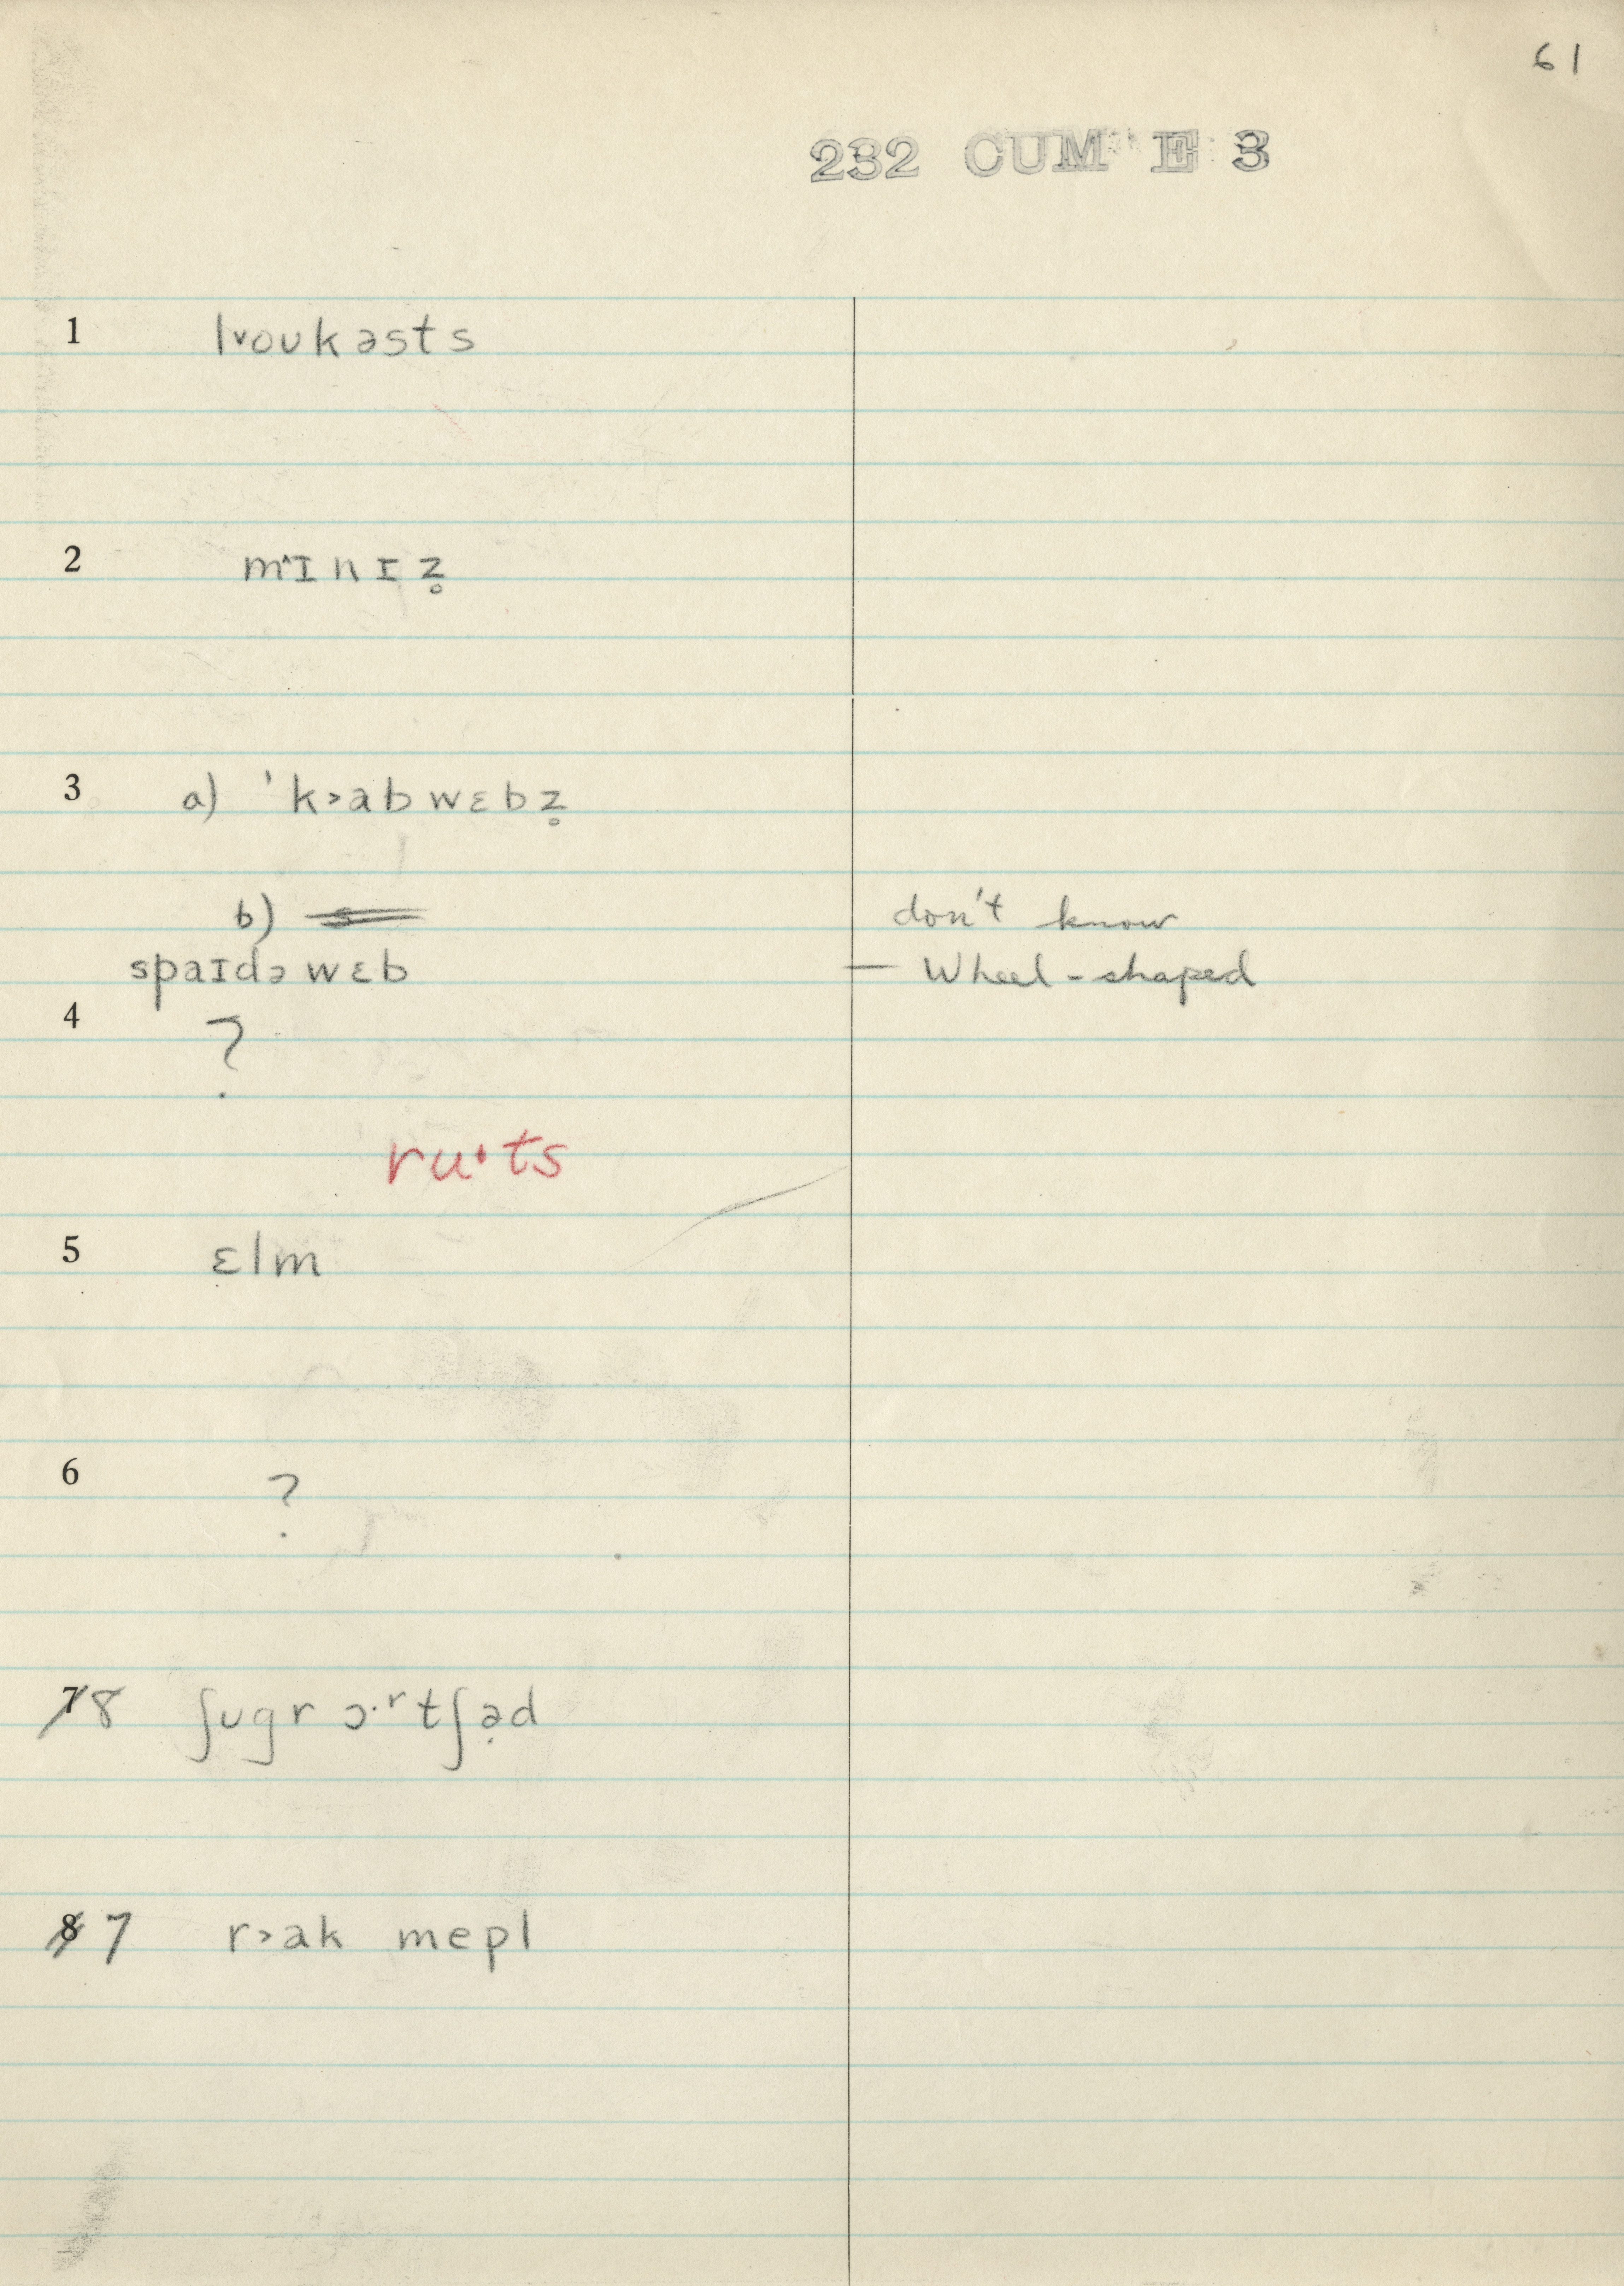 61
232 CUM E 3
1 l˅oʊkəsts
2 m˄ɪnɪz̥
3 a) ˈk˃abwɛbz̥
b) don't know
spaɪdə wɛb — Wheel-shaped
4 ?
ru·ts
5 ɛlm
6 ?
7 8 ʃʊgr ɔ·ʳtʃə̣d
8 7 r˃ak mepl